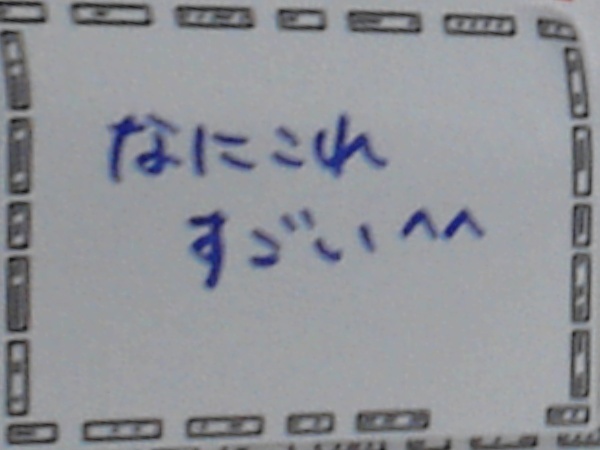 なにこれ
すごい^^